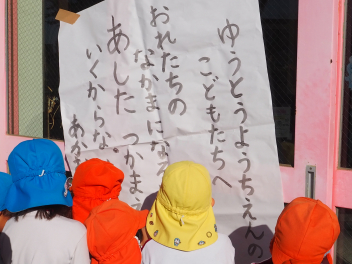 ゆうとうようちえんの
こどもたちへ
おれたちの
なかまになる
あした つかま
いくからな
あか